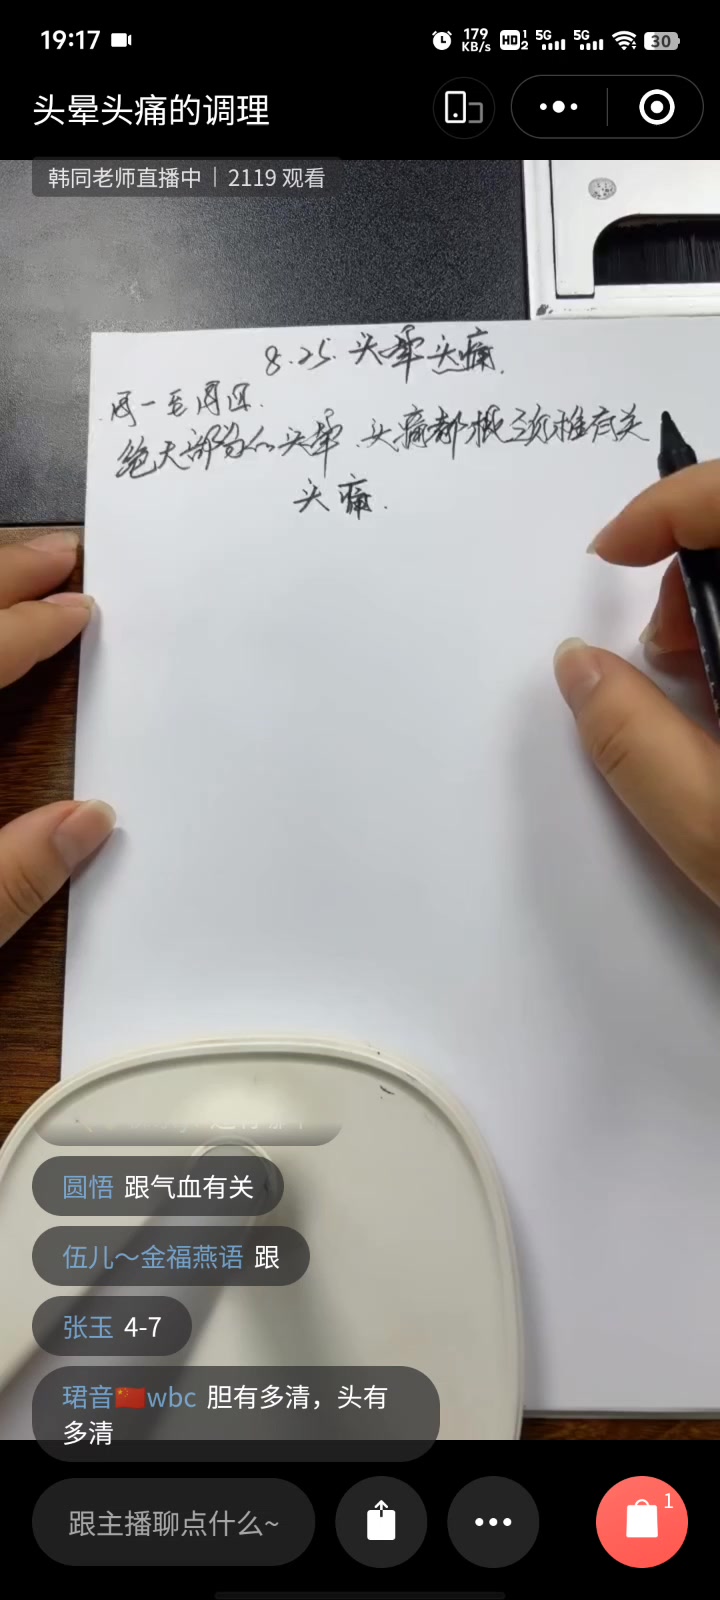 19:17
179 KB/s HD 1 2 5G 5G 30
头晕头痛的调理
韩同老师直播中 | 2119 观看
8.25. 头晕头痛.
周一至周四.
绝大部分的头晕.头痛都根颈椎有关
头痛.
圆悟 跟气血有关
伍儿～金福燕语 跟
张玉 4-7
珺音🇨🇳wbc 胆有多清，头有
多清
跟主播聊点什么~
1